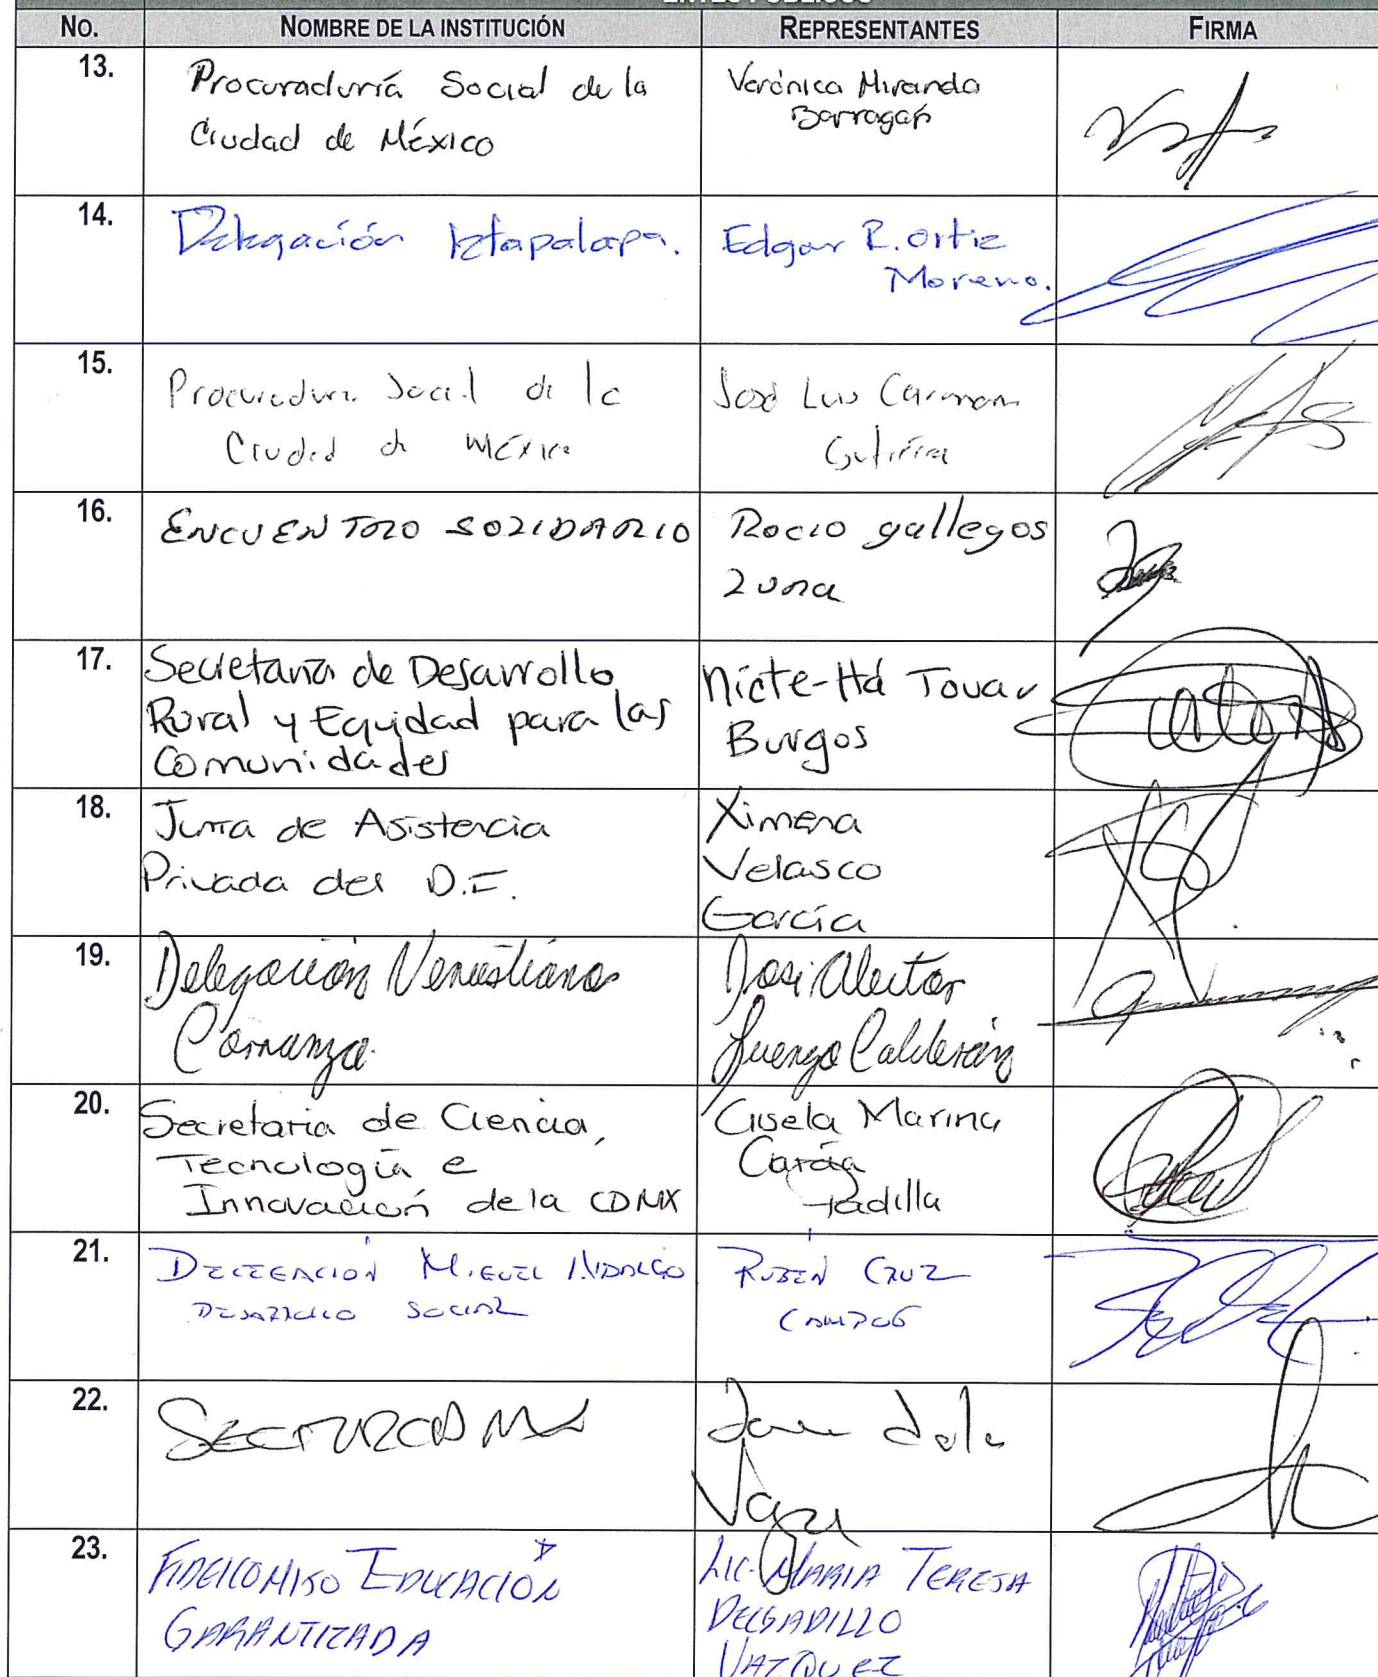 ENTES PÚBLICOS
NO. NOMBRE DE LA INSTITUCIÓN REPRESENTANTES FIRMA
13.
Procuraduría Social de la
Ciudad de México
Verónica Miranda
Barragán
14.
Delegación Iztapalapa.
Edgar R. Ortiz
Moreno.
15.
Procuraduría Social de la
Ciudad de México
José Luis
Gutiérrez
16.
ENCUENTRO SOLIDARIO
Rocio gallegos
17.
Secretaría de Desarrollo
Rural y Equidad para las
Comunidades
Nicte-Há Tovar
Burgos
18.
Junta de Asistencia
Privada del D.F.
Ximena
Velasco
García
19.
Delegación Venustiano
Carranza.
José
Calderón
20.
Secretaria de Ciencia,
Tecnología e
Innovación de la CDMX
Gisela Marina
Padilla
21.
DELEGACION MIGUEL HIDALGO
DESARROLLO SOCIAL
RUBEN CRUZ
CAMPOS
22.
SECTURCDMX
23.
FIDEICOMISO EDUCACIÓN
GARANTIZADA
LIC. MARIA TERESA
DELGADILLO
VAZQUEZ